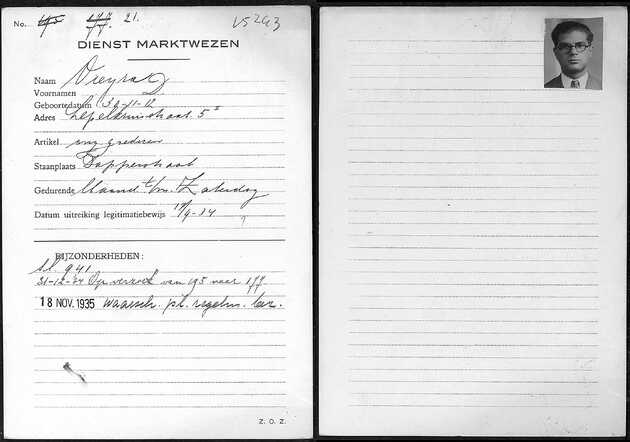 No. 195 177. 21.
V5263
DIENST MARKTWEZEN
Naam Vieyra D
Voornamen
Geboortedatum 30-11-12
Adres straat 5
Artikel ong. goederen
Staanplaats Dapperstraat
Gedurende Maand t/m. Zaterdag
Datum uitreiking legitimatiebewijs 17/9-34
BIJZONDERHEDEN:
bl. 941
31-12-34 Op verzoek van 195 naar 177.
18 NOV. 1935 waarsch. pl. regelm. bez.
Z. O. Z.